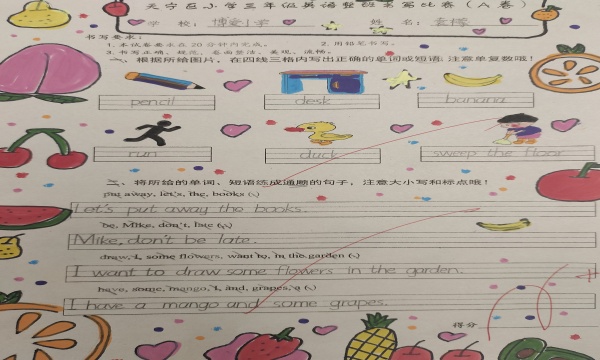 天宁区小学三年级英语整班书写比赛（A卷）
学 校：博爱小学 姓 名：
书写要求：
1.本试卷要求在20分钟内完成。 2.用铅笔书写。
3.书写正确、规范、卷面整洁、美观、流畅。
一、根据所给图片，在四线三格内写出正确的单词或短语，注意单复数哦！
pencil desk banana
run duck sweep the floor
二、将所给的单词、短语练成通顺的句子，注意大小写和标点哦！
put away, let's, the, books (.)
Let's put away the books.
be, Mike, don't, late (,.)
Mike, don't be late.
draw, I, some flowers, want to, in the garden (.)
I want to draw some flowers in the garden.
have, some, mango, I, and, grapes, a (.)
I have a mango and some grapes.
得分